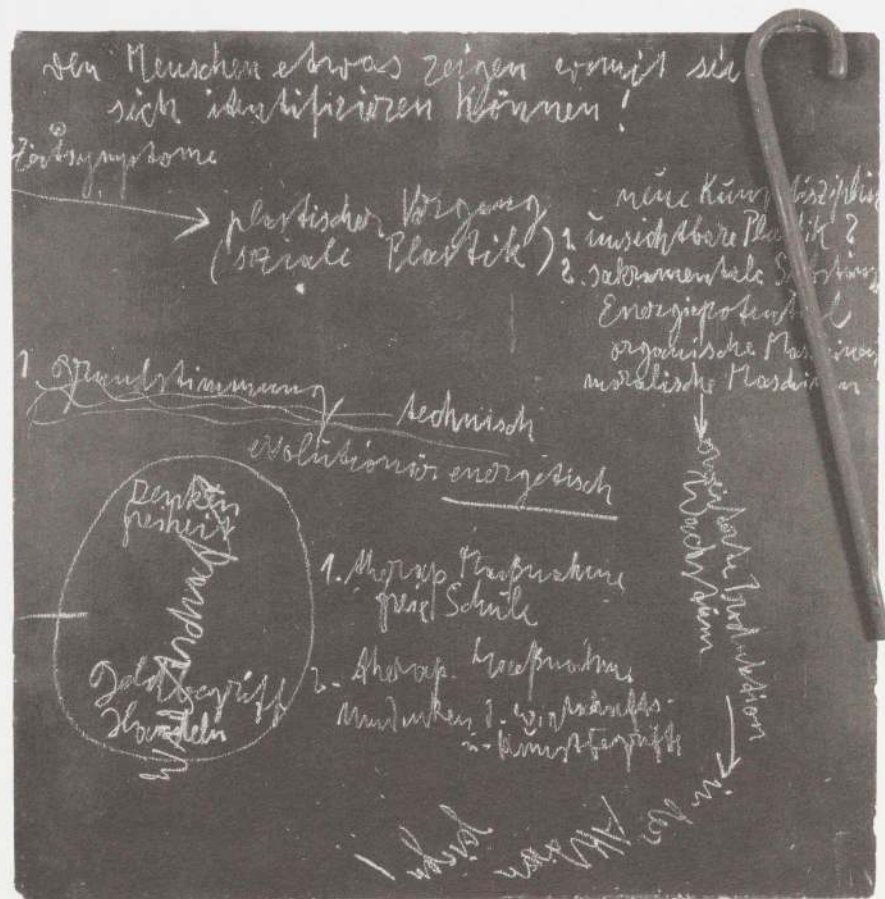 den Menschen etwas zeigen womit sie
sich identifizieren können!
Zeitsymptome
plastischer Vorgang
(soziale Plastik)
neue Kunstdisziplin
1. unsichtbare Plastik?
2. sakramentale Substanz
Energiepotential
organische Maschinen
moralische Maschinen
1 Grundstimmung
technisch
evolutionär energetisch
Denken
freiheit
Geldbegriff
Handeln
1. therap Maßnahme
freie Schule
2. therap. Maßnahme
Umdenken d. wirtschafts-
u- Kunstbegriffs
erweiterte Produktion
Wachstum
in der